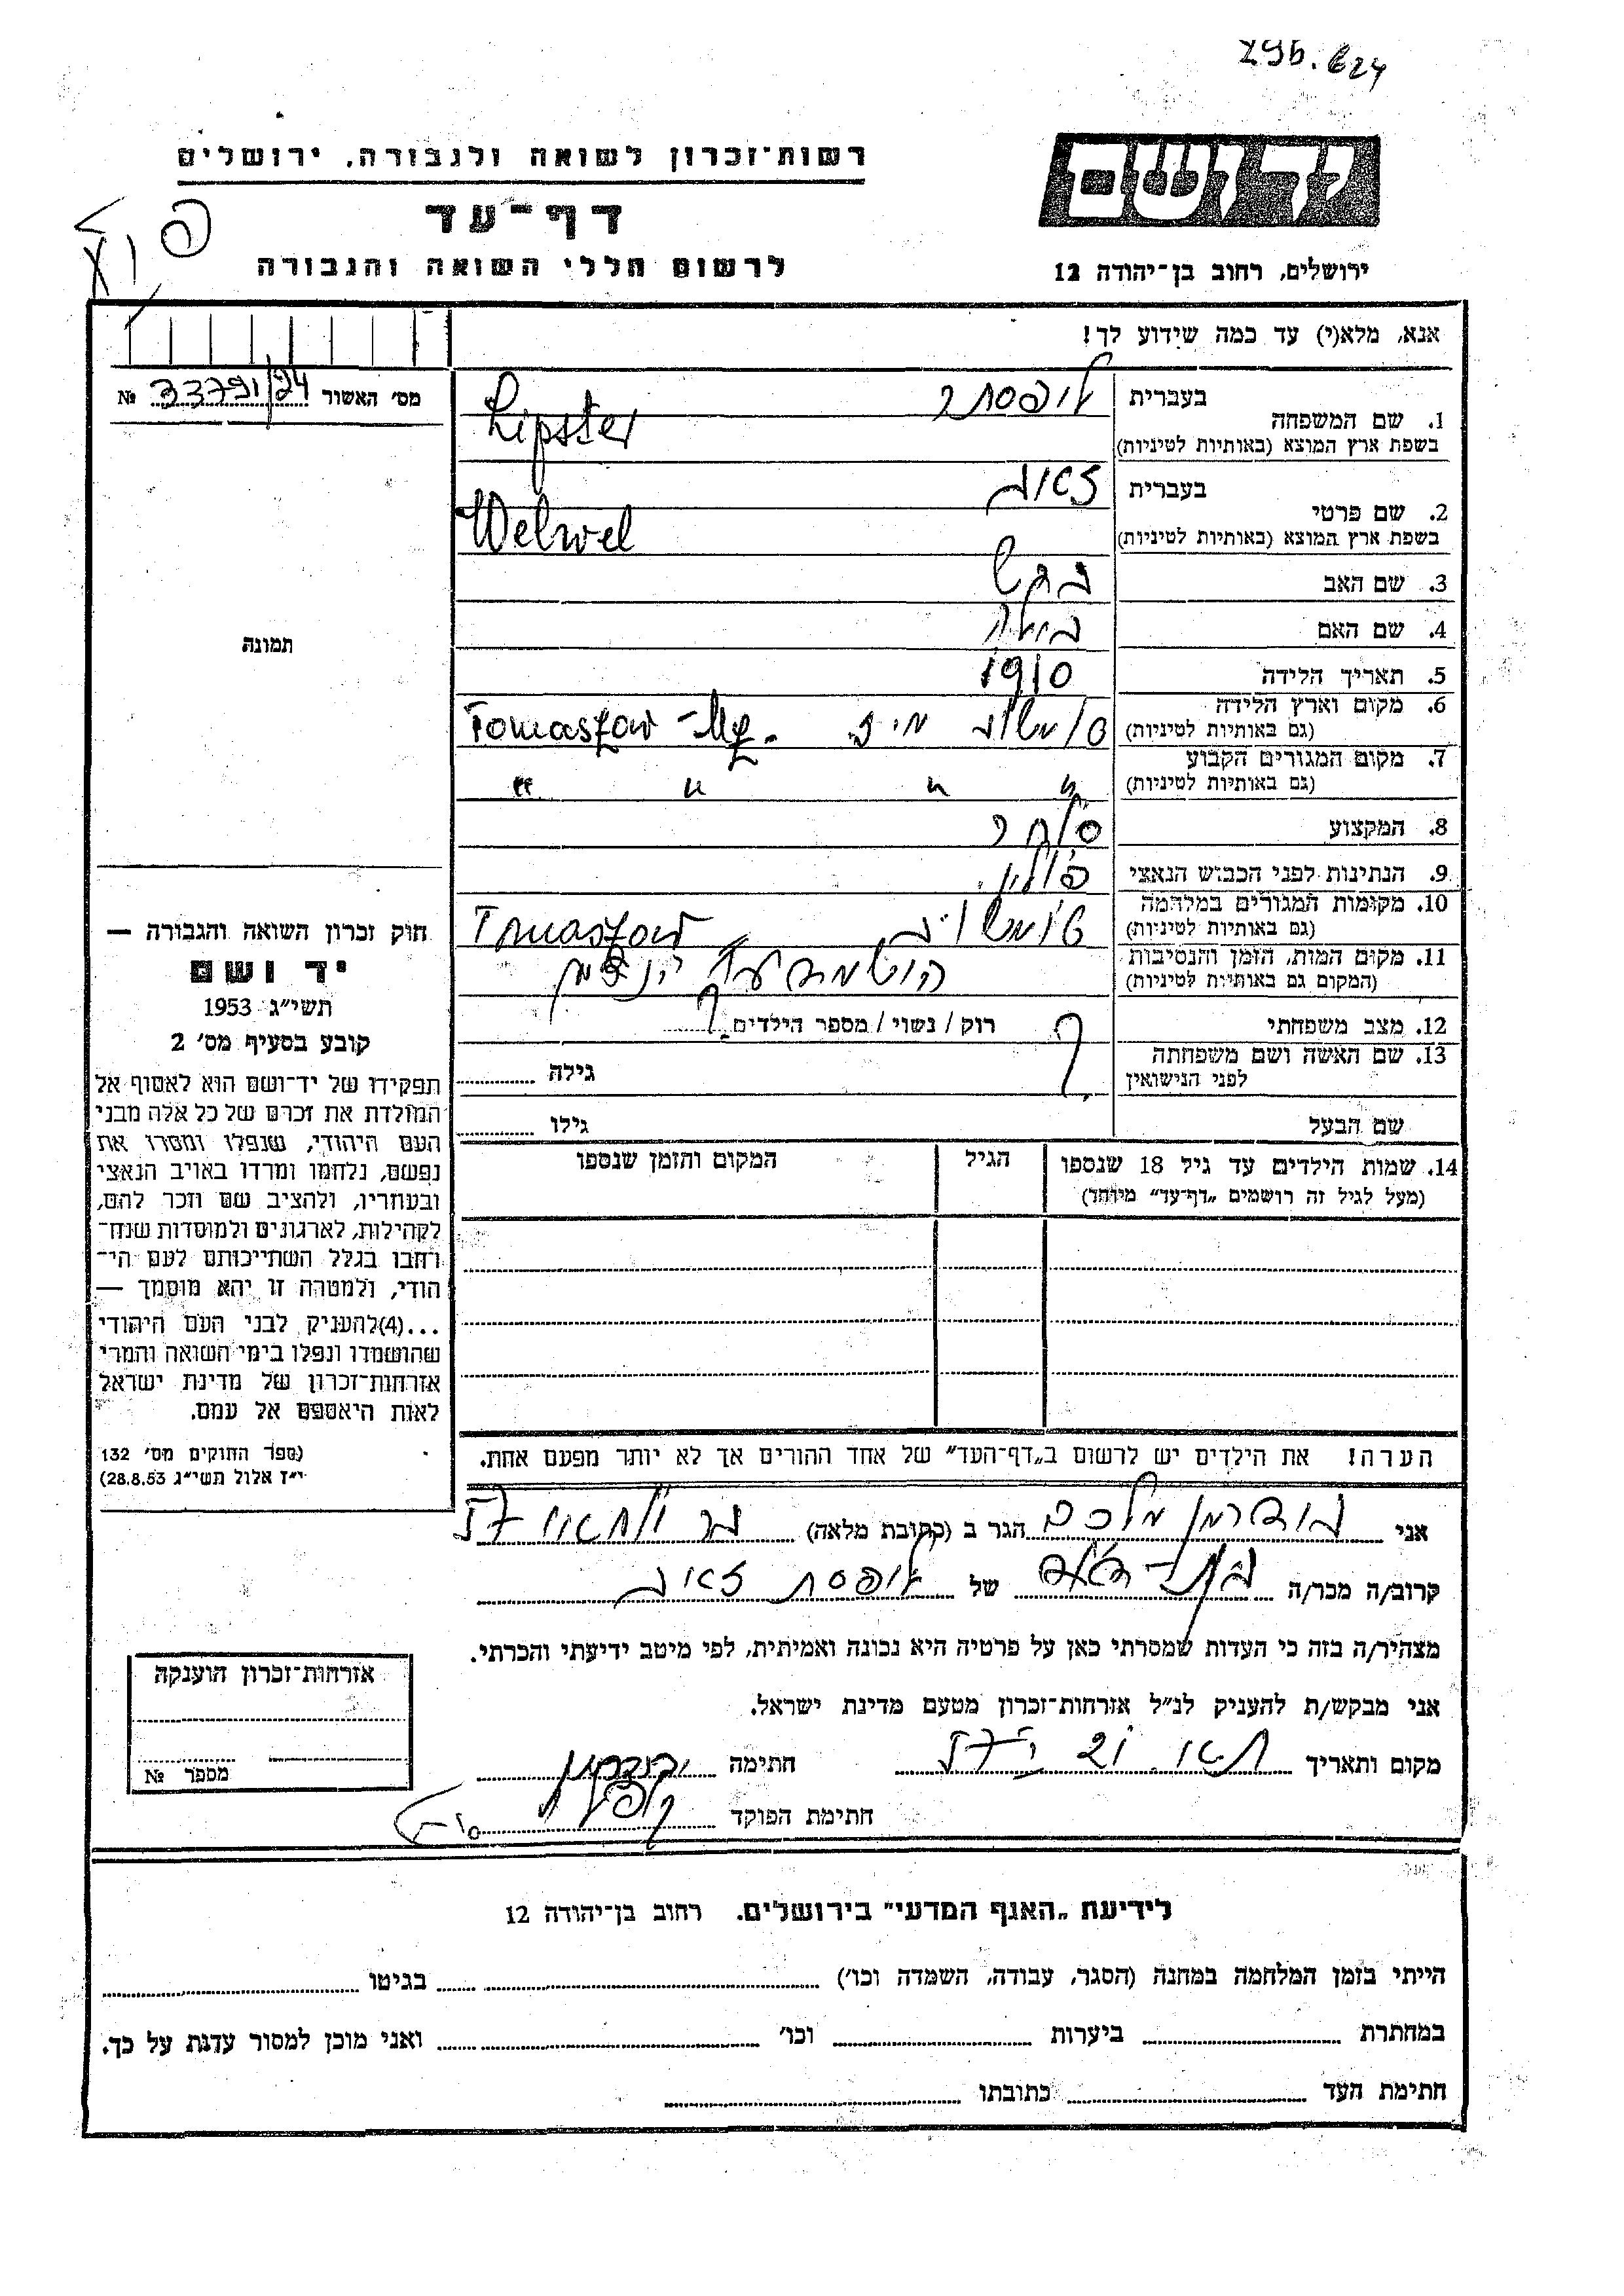 296.624
רשות־זכרון לשואה ולגבורה, ירושלים
יד ושם
דף־עד
לרשום חללי השואה והגבורה
ירושלים, רחוב בן־יהודה 12
אנא, מלא(י) עד כמה שידוע לך!
מס׳ האשור № 33791/24
1. שם המשפחה בעברית ליפסתר
בשפת ארץ המוצא (באותיות לטיניות) Lipster
2. שם פרטי בעברית זאב
בשפת ארץ המוצא (באותיות לטיניות) Welwel
3. שם האב
4. שם האם
5. תאריך הלידה 1910
6. מקום וארץ הלידה
(גם באותיות לטיניות) Tomaszow
7. מקום המגורים הקבוע
(גם באותיות לטיניות) " " " "
8. המקצוע סוחר
9. הנתינות לפני הכבוש הנאצי פולין.
10. מקומות המגורים במלחמה
(גם באותיות לטיניות) טומשוב Tomaszow
11. מקום המות, הזמן והנסיבות
(המקום גם באותיות לטיניות)
12. מצב משפחתי רוק / נשוי / מספר הילדים ?
13. שם האשה ושם משפחתה
לפני הנישואין ? גילה
שם הבעל גילו
14. שמות הילדים עד גיל 18 שנספו
(מעל לגיל זה רושמים „דף־עד" מיוחד)
הגיל
המקום והזמן שנספו
תמונה
חוק זכרון השואה והגבורה —
יד ושם
תשי״ג 1953
קובע בסעיף מס׳ 2
תפקידו של יד־ושם הוא לאסוף אל
המולדת את זכרם של כל אלה מבני
העם היהודי, שנפלו ומסרו את
נפשם, נלחמו ומרדו באויב הנאצי
ובעוזריו, ולהציב שם וזכר להם,
לקהילות, לארגונים ולמוסדות שנח־
רבו בגלל השתייכותם לעם הי־
הודי, ולמטרה זו יהא מוסמך —
...(4)להעניק לבני העם היהודי
שהושמדו ונפלו בימי השואה והמרי
אזרחות־זכרון של מדינת ישראל
לאות היאספם אל עמם.
(ספר החוקים מס׳ 132
י״ז אלול תשי״ג 28.8.53)
הערה! את הילדים יש לרשום ב„דף־העד" של אחד ההורים אך לא יותר מפעם אחת.
אני בודרמן מלכה הגר ב (כתובת מלאה)
קרוב/ה מכר/ה של ליפסת זאב
מצהיר/ה בזה כי העדות שמסרתי כאן על פרטיה היא נכונה ואמיתית, לפי מיטב ידיעתי והכרתי.
אני מבקש/ת להעניק לנ״ל אזרחות־זכרון מטעם מדינת ישראל.
מקום ותאריך חתימה
חתימת הפוקד
אזרחות־זכרון הוענקה
מספר №
לידיעת „האגף המדעי" בירושלים. רחוב בן־יהודה 12
הייתי בזמן המלחמה במחנה (הסגר, עבודה, השמדה וכו׳) בגיטו
במחתרת ביערות וכו׳ ואני מוכן למסור עדות על כך.
חתימת העד כתובתו